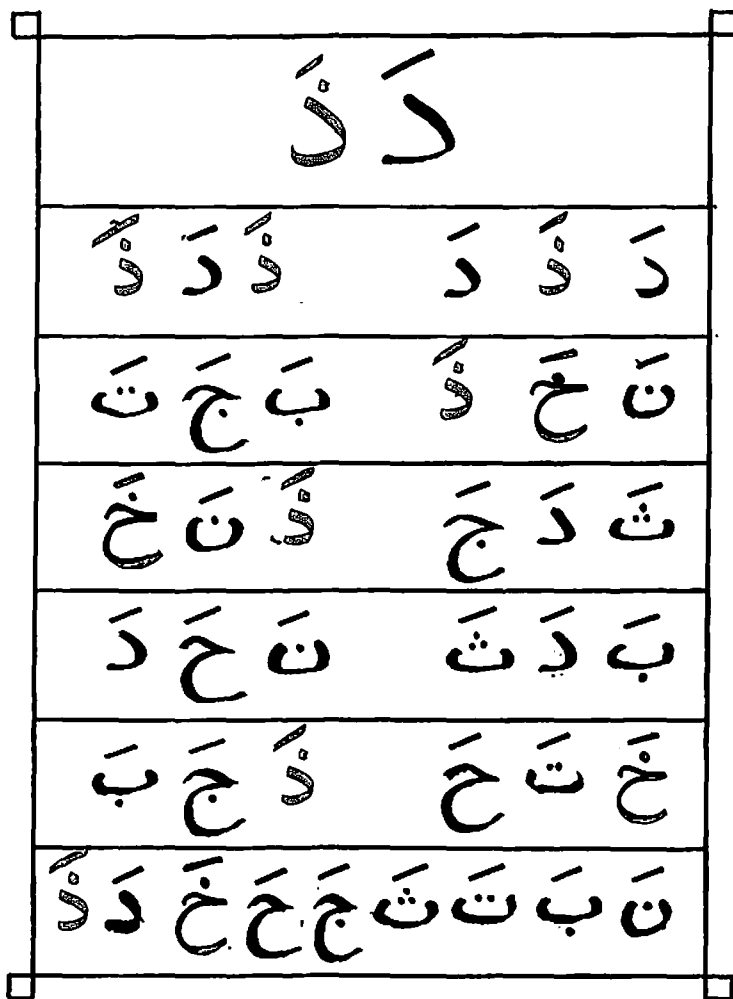 دَ ذَ
دَ ذَ دَ ذَ دَ ذَ
نَ خَ ذَ بَ جَ تَ
ثَ دَ جَ ذَ نَ خَ
بَ دَ ثَ نَ حَ دَ
خَ تَ حَ ذَ جَ بَ
نَ بَ تَ ثَ جَ حَ خَ دَ ذَ